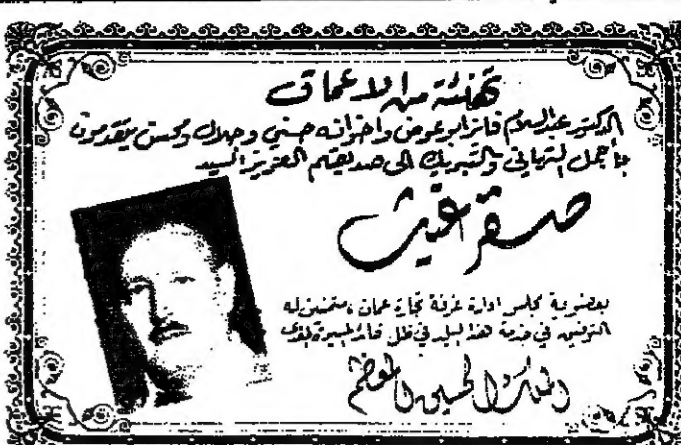 تهنئة من الاعماق
الدكتور عبدالسلام فائز ابو عوض واخوانه حسني وجلال ومحسن يتقدمون
بأجمل التهاني والتبريك الى صديقهم العزيز السيد
بعضوية مجلس ادارة غرفة تجارة عمان ، متمنين له
التوفيق في خدمة هذا البلد في ظل قائد المسيرة المفدى
الملك الحسين المعظم